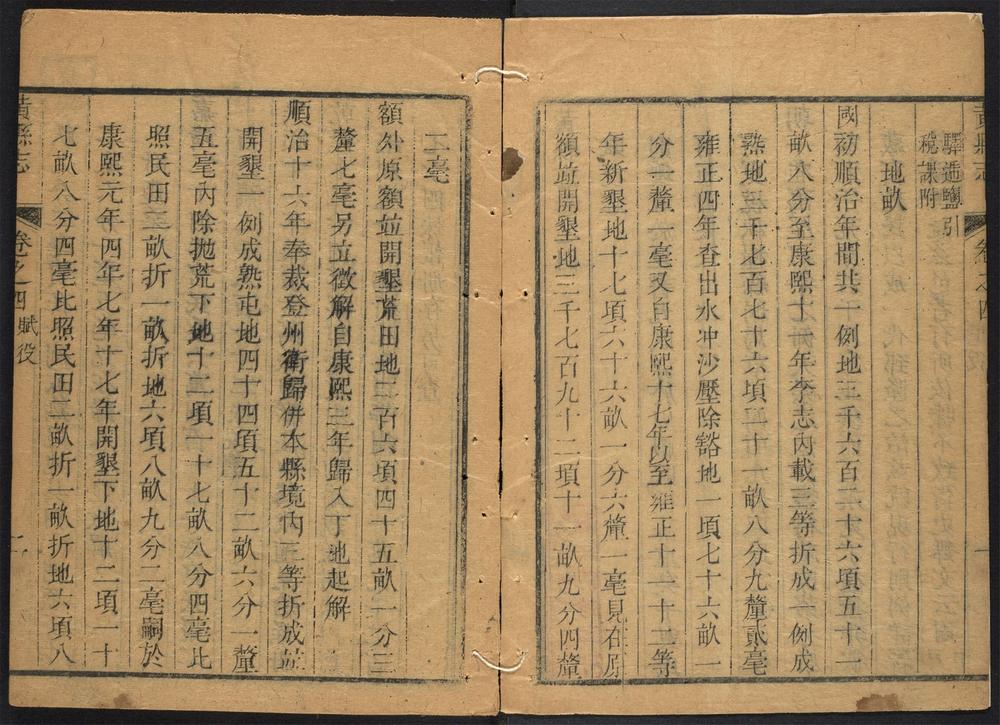 黃縣志
卷之四
一
驛遞鹽引
稅課附
地畝
國初順治年間共一例地三千六百二十六項五十一
畝六分至康熙十一年李志內載三等折成一例成
熟地三千七百七十六項二十一畝八分九釐貳毫
雍正四年查出水冲沙壓除豁地一項七十六畝一
分一釐一毫又自康熙十七年以至雍正十一十二等
年新墾地十七項六十六畝一分六釐一毫見在原
額並開墾地三千七百九十二項十一畝九分四釐
二毫
額外原額並開墾荒田地二百六項四十五畝一分三
釐七毫另立徵解自康熙三年歸入丁地起解
順治十六年奉裁登州衛歸併本縣境內三等折成並
開墾一例成熟屯地四十四項五十二畝六分一釐
五毫內除拋荒下地十二項一十七畝八分四毫比
照民田三畝折一畝折地六項八畝九分二毫嗣於
康熙元年四年七年十七年開墾下地十二項一十
七畝八分四毫比照民田二畝折一畝折地六項八
黃縣志
卷之四 賦役
二